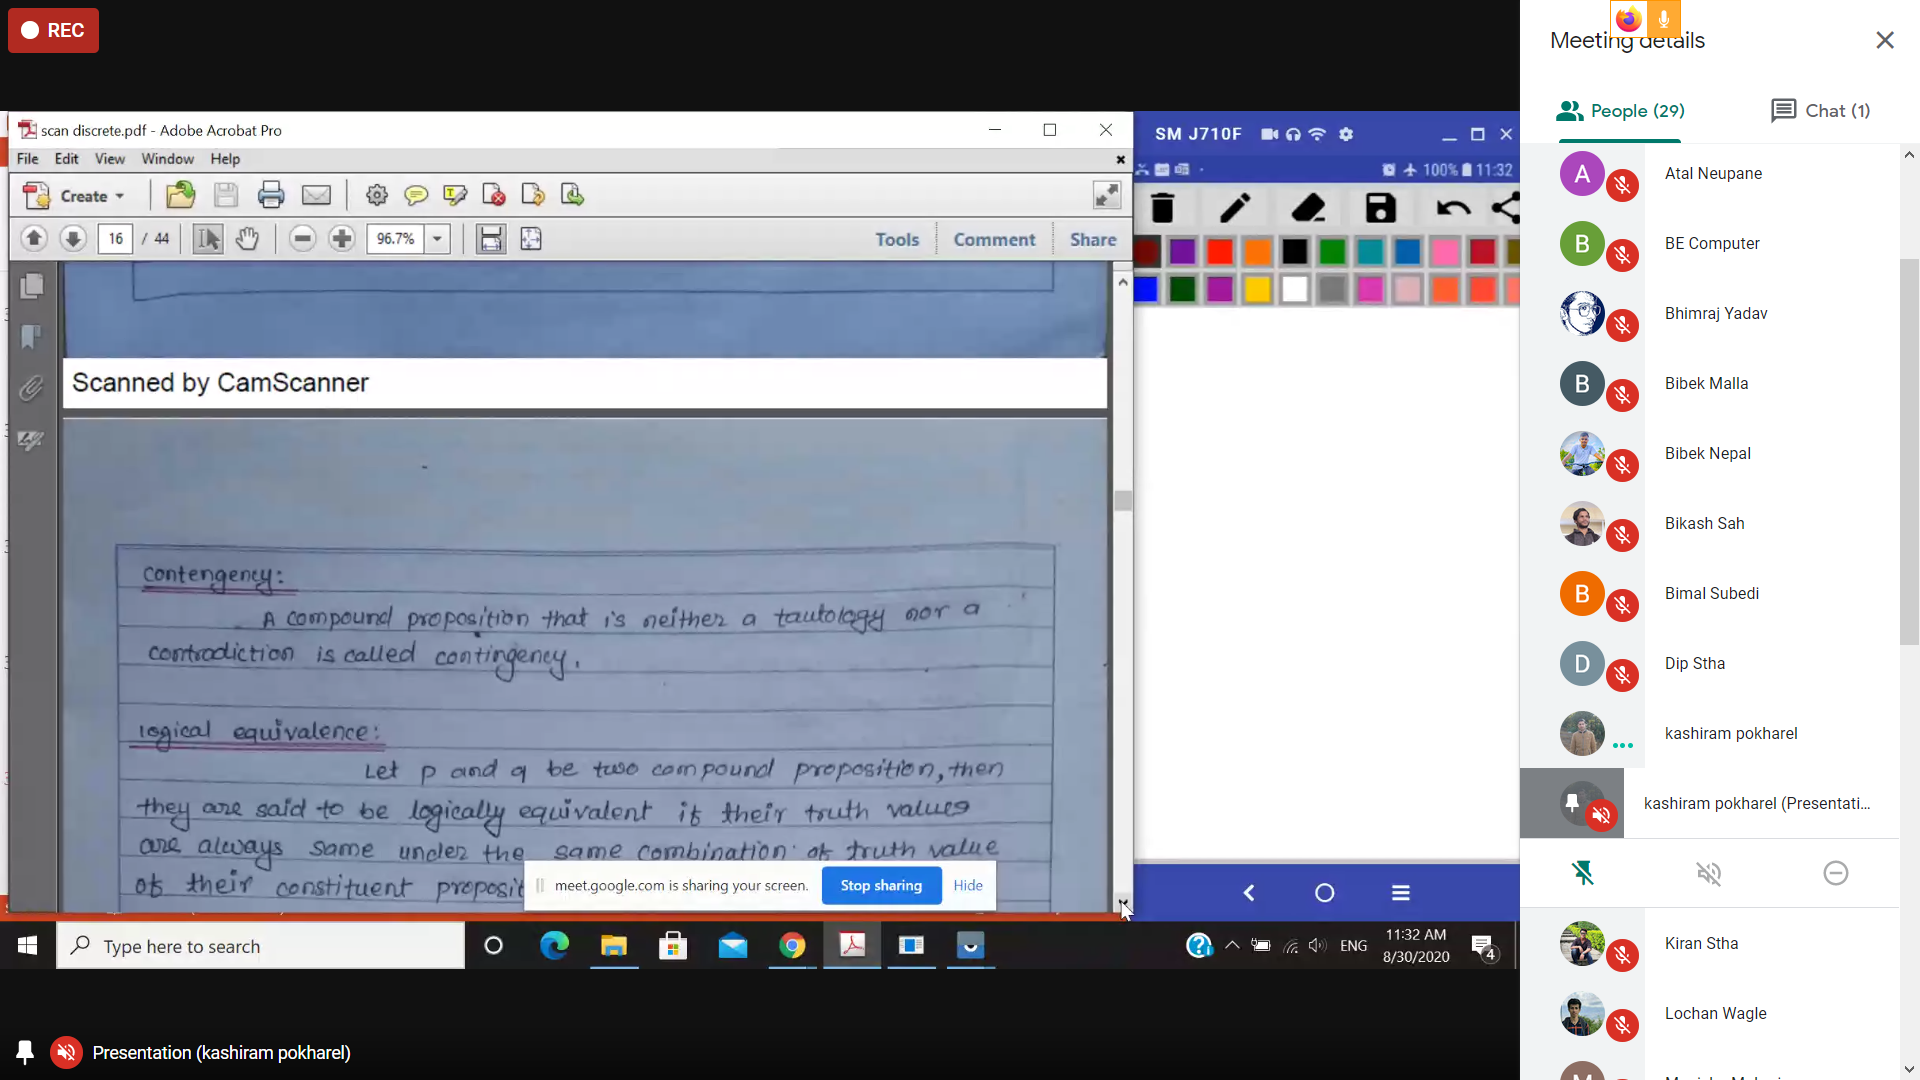 REC
scan discrete.pdf - Adobe Acrobat Pro
File Edit View Window Help
Create
16 / 44
96.7%
Tools Comment Share
Scanned by CamScanner
contengency:
A compound proposition that is neither a tautology nor a
contradiction is called contingency.
logical equivalence:
Let p and q be two compound proposition, then
they are said to be logically equivalent if their truth values
are always same under the same combination of truth value
of their constituent proposit
meet.google.com is sharing your screen.
Stop sharing
Hide
SM J710F
100% 11:32
Type here to search
ENG
11:32 AM
8/30/2020
4
Presentation (kashiram pokharel)
Meeting details
People (29)
Chat (1)
A Atal Neupane
B BE Computer
Bhimraj Yadav
B Bibek Malla
Bibek Nepal
Bikash Sah
B Bimal Subedi
D Dip Stha
kashiram pokharel
kashiram pokharel (Presentati...
Kiran Stha
Lochan Wagle